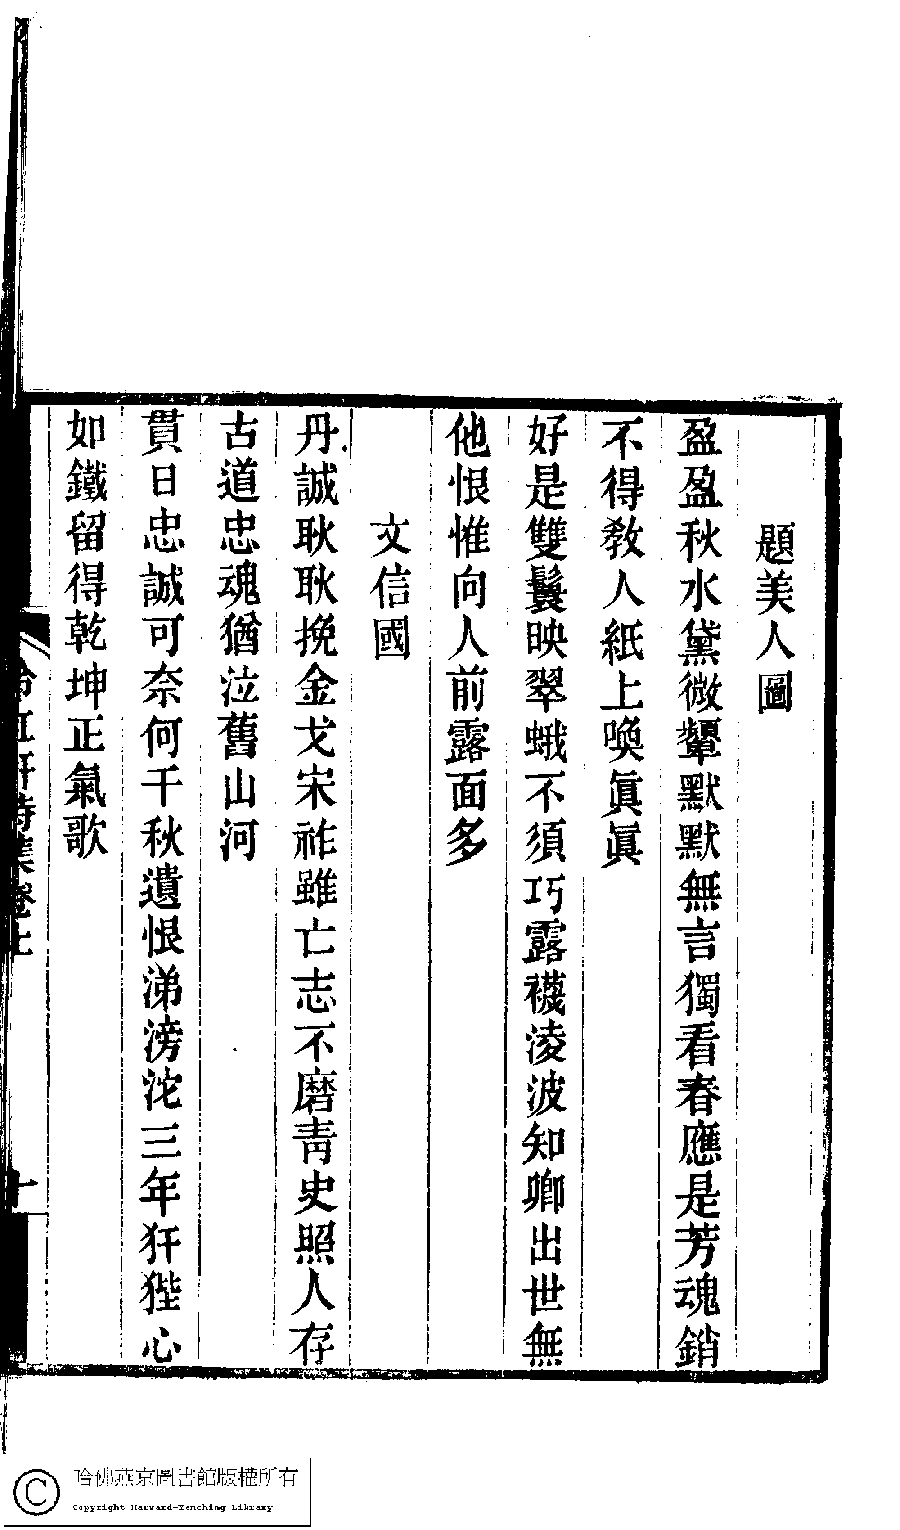 題美人圖
盈盈秋水黛微顰默默無言獨看春應是芳魂銷
不得教人紙上喚眞眞
好是雙鬟映翠蛾不須巧露襪淩波知卿出世無
他恨惟向人前露面多
文信國
丹誠耿耿挽金戈宋祚雖亡志不磨靑史照人存
古道忠魂猶泣舊山河
貫日忠誠可奈何千秋遺恨涕滂沱三年犴狴心
如鐵留得乾坤正氣歌
詩集卷上
十
哈佛燕京圖書館版權所有
Copyright Harvard-Yenching Library